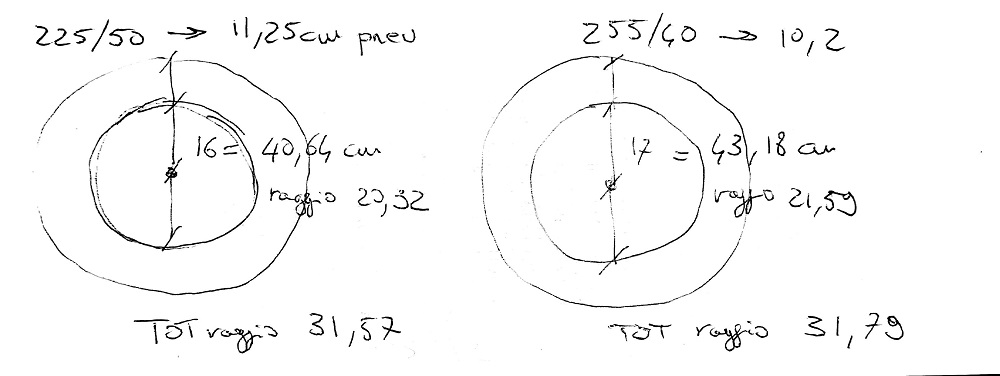 225/50 → 11,25cm pneu
16 = 40,64 cm
raggio 20,32
TOT raggio 31,57
255/40 → 10,2
17 = 43,18 cm
raggio 21,59
TOT raggio 31,79